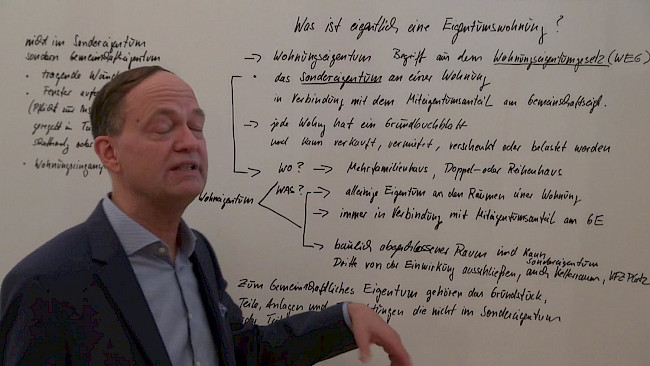 nicht im Sondereigentum
sondern Gemeinschaftseigentum
• tragende Wände
• Fenster
• Wohnungseingang
Was ist eigentlich eine Eigentumswohnung?
→ Wohnungseigentum Begriff aus dem Wohnungseigentumgesetz (WEG)
• das Sondereigentum an einer Wohnung
in Verbindung mit dem Miteigentumsanteil am Gemeinschaftseigt.
→ jede Wohng hat ein Grundbuchblatt
und kann verkauft, vermietet, verschenkt oder belastet werden
→ WO? → Mehrfamilienhaus, Doppel- oder Reihenhaus
Wohneigentum
WAS? → alleinige Eigentum an den Räumen einer Wohnung
→ immer in Verbindung mit Miteigentumsanteil am GE
→ baulich abgeschlossener Raum und kann
Dritte von der Einwirkung ausschließen, auch Kellerraum, KFZ Platz
Sondereigentum
Zum Gemeinschaftliches Eigentum gehören das Grundstück,
Teile, Anlagen und die nicht im Sondereigentum